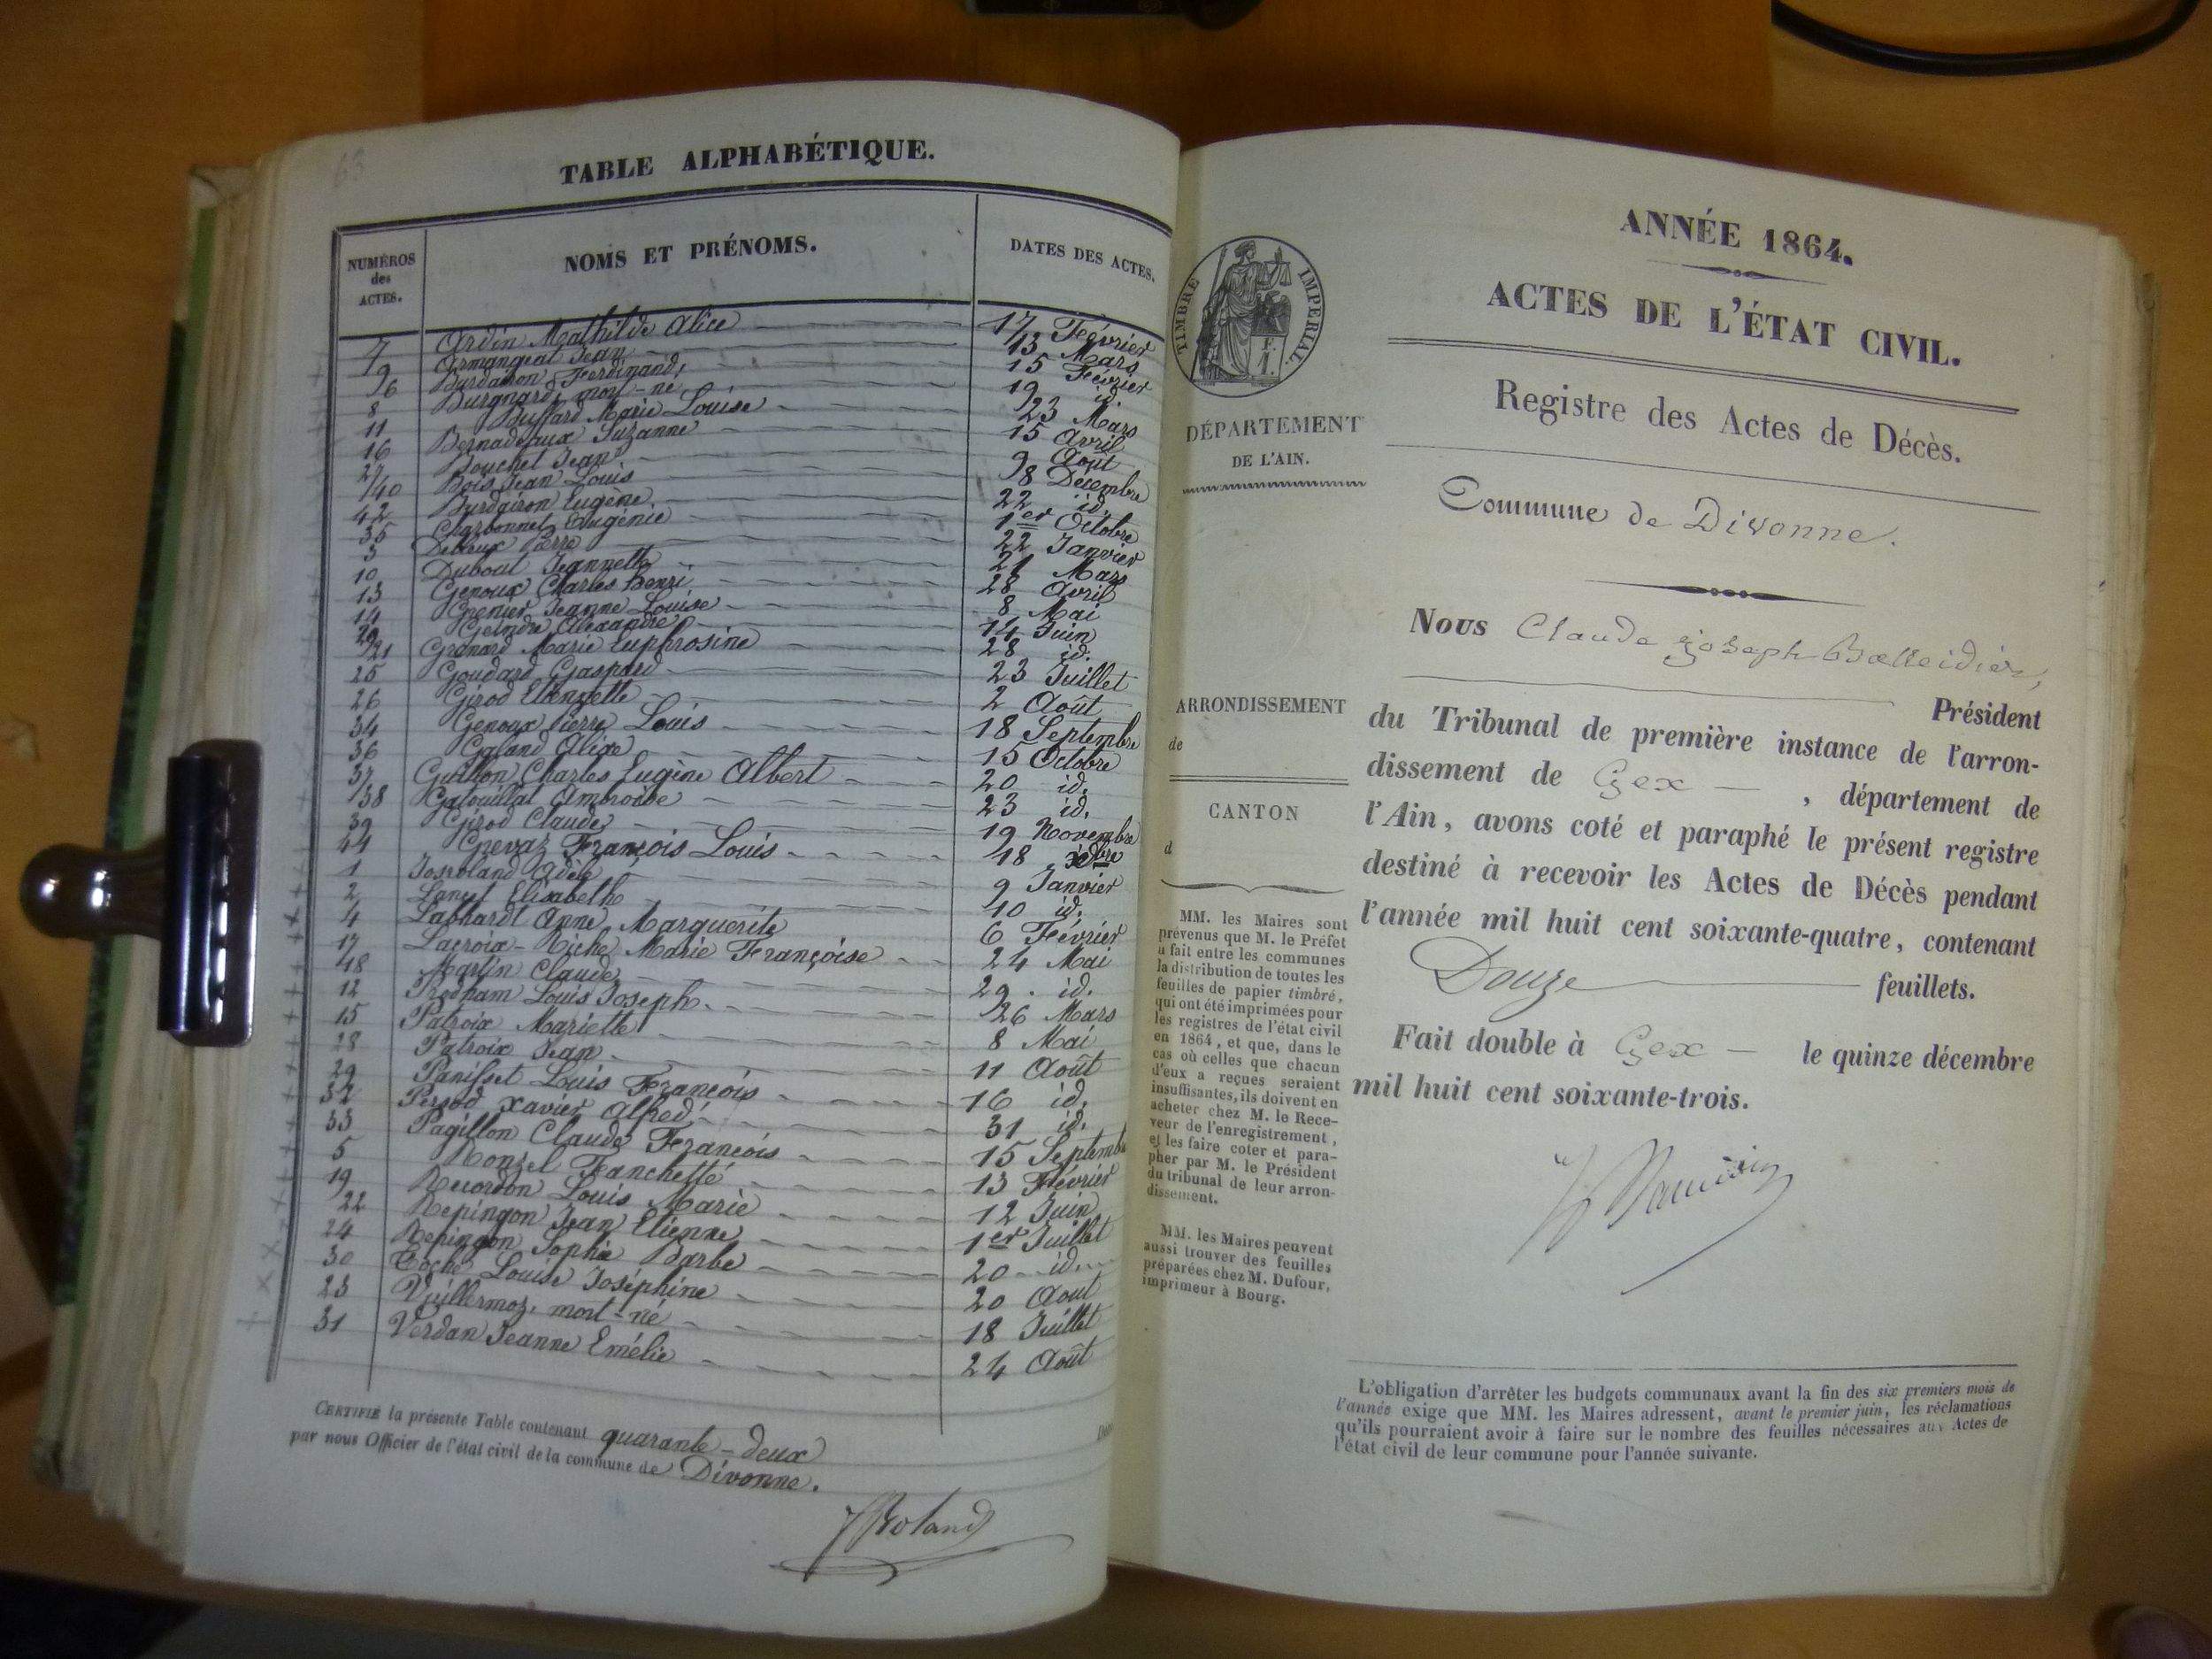 63
TABLE ALPHABÉTIQUE.
NUMÉROS des ACTES.
NOMS ET PRÉNOMS.
DATES DES ACTES.
7 Ardin Mathilde Alice 17 Février
9 Armangeat Jean 13 Mars
6 Burdairon Ferdinand 15 Février
8 Burgnard, mort-né 19 id.
11 Buffard Marie Louise 23 Mars
16 Bernadeaux Suzanne 15 Avril
27 Bouchet Jean 9 Août
40 Bois Jean Louis 8 Décembre
42 Burdairon Eugène 22 id.
35 Charbonnet Eugénie 1er Octobre
3 Pierre 22 Janvier
10 Dubout Jeannette 21 Mars
13 Genoux Charles Henri 28 Avril
14 Grenier Jeanne Louise 8 Mai
20 Geindre Alexandre 14 Juin
21 Granard Marie Euphrosine 28 id.
25 Goudard Gaspard 23 Juillet
26 Girod Etiennette 2 Août
34 Genoux Pierre Louis 18 Septembre
36 Galand Alix 15 Octobre
37 Guillon Charles Eugène Albert 20 id.
38 Gatouillat Ambroise 23 id.
39 Girod Claude 19 Novembre
41 Grevaz François Louis 18 Xbre
1 Josroland Adèle 9 Janvier
2 Elisabeth 10 id.
4 Labhardt Anne Marguerite 6 Février
17 Lacroix-Riche Marie Françoise 24 Mai
18 Martin Claude 29 id.
12 Prodham Louis Joseph 26 Mars
15 Patroix Mariette 8 Mai
28 Patroix Jean 11 Août
29 Panisset Louis François 16 id.
32 Persod Xavier Alfred 31 id.
33 Pagillon Claude François 15 Septembre
5 Ronzel Fanchette 13 Février
19 Recordon Louis Marie 12 Juin
22 Repingon Jean Etienne 1er Juillet
24 Repingon Sophie Barbe 20 id.
30 Coché Louise Joséphine 20 Aout
23 Vuillermoz, mort-né 18 Juillet
31 Verdan Jeanne Emélie 24 Août
CERTIFIÉ la présente Table contenant quarante-deux
par nous Officier de l'état civil de la commune de Divonne.
Roland
TIMBRE IMPÉRIAL
DÉPARTEMENT
DE L'AIN.
ARRONDISSEMENT
de
CANTON
d
MM. les Maires sont
prévenus que M. le Préfet
a fait entre les communes
la distribution de toutes les
feuilles de papier timbré,
qui ont été imprimées pour
les registres de l'état civil
en 1864, et que, dans le
cas où celles que chacun
d'eux a reçues seraient
insuffisantes, ils doivent en
acheter chez M. le Rece-
veur de l'enregistrement,
et les faire coter et para-
pher par M. le Président
du tribunal de leur arron-
dissement.
MM. les Maires peuvent
aussi trouver des feuilles
préparées chez M. Dufour,
imprimeur à Bourg.
ANNÉE 1864.
ACTES DE L'ÉTAT CIVIL.
Registre des Actes de Décès.
Commune de Divonne.
Nous Claude Joseph Balleidier,
Président
du Tribunal de première instance de l'arron-
dissement de Gex, département de
l'Ain, avons coté et paraphé le présent registre
destiné à recevoir les Actes de Décès pendant
l'année mil huit cent soixante-quatre, contenant
Douze feuillets.
Fait double à Gex le quinze décembre
mil huit cent soixante-trois.
L'obligation d'arrêter les budgets communaux avant la fin des six premiers mois de
l'année exige que MM. les Maires adressent, avant le premier juin, les réclamations
qu'ils pourraient avoir à faire sur le nombre des feuilles nécessaires aux Actes de
l'état civil de leur commune pour l'année suivante.